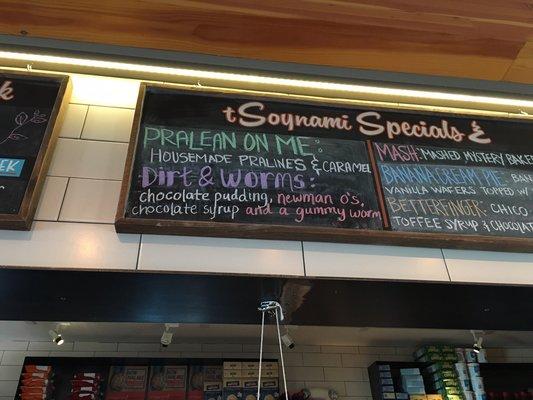 k
EEK
tSoynami Specials &
PRALEAN ON ME:
HOUSEMADE PRALINES & CARAMEL
Dirt & Worms:
chocolate pudding, newman o's,
chocolate syrup and a gummy worm
MASH: MASHED MYSTERY BAKE
BANANA CREAM PIE: BAN
VANILLA WAFERS TOPPED W/
BETTERFINGER: CHICO
TOFFEE SYRUP & CHOCOLAT